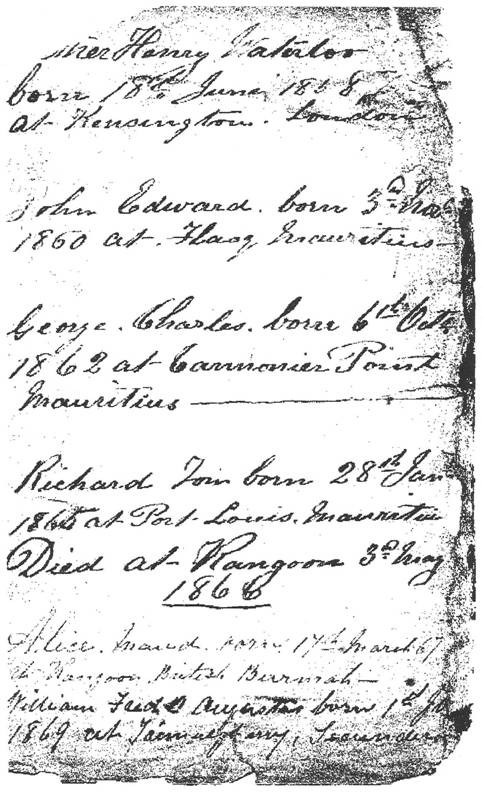 Henry Waterloo
born 18th June 1858
at Kensington. London
John Edward. born 3rd
1860 at Flacq Mauritius
George. Charles. born 6th Octr
1862 at Cannonier Point
Mauritius
Richard Tom born 28th Jan
1865 at Port Louis. Mauritiu
Died at Rangoon 3rd May
1866
Alice. Maud. born 17th March 67
at Rangoon British Burmah
William Fredk Augustus born 1st
1869 at